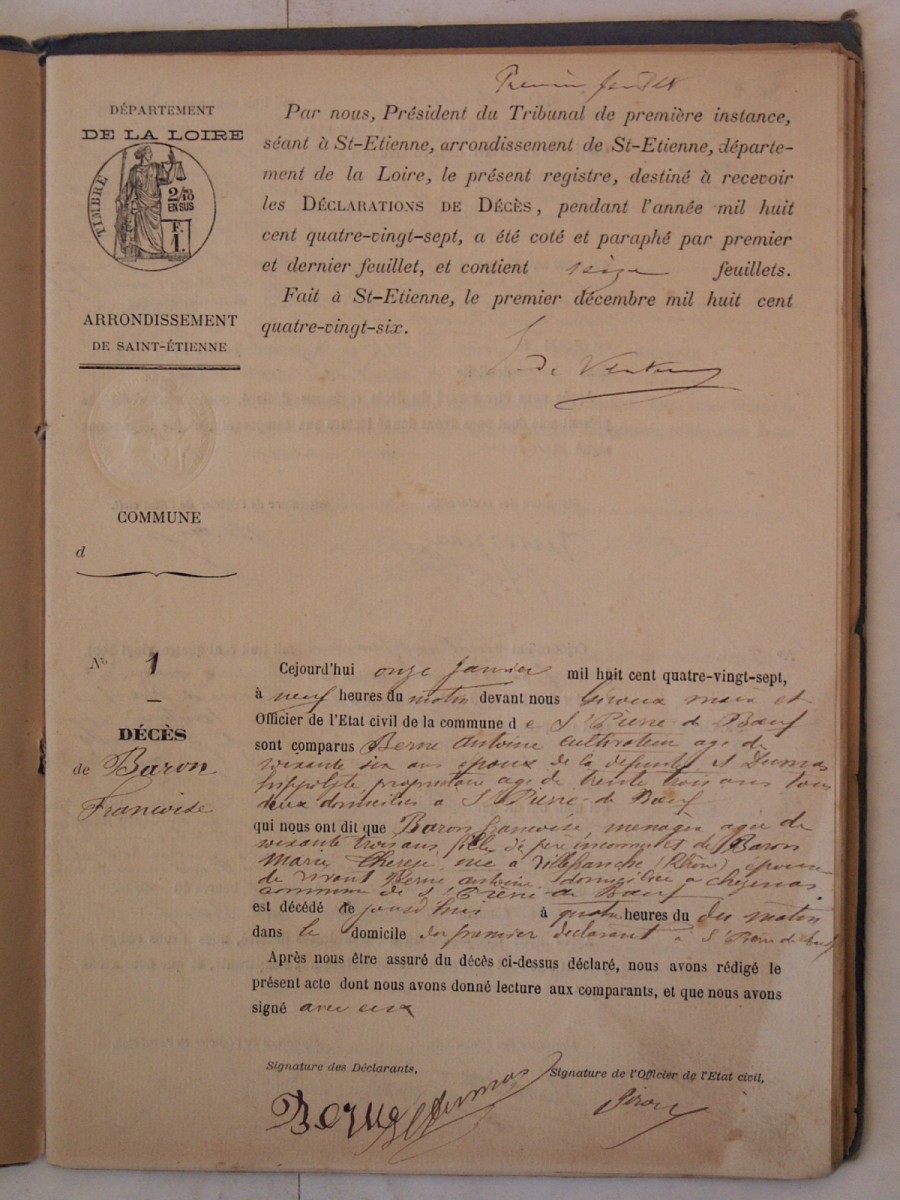 Premier feuillet
DÉPARTEMENT
DE LA LOIRE
TIMBRE
2/10
EN SUS
F.
1.
Par nous, Président du Tribunal de première instance,
séant à St-Etienne, arrondissement de St-Etienne, départe-
ment de la Loire, le présent registre, destiné à recevoir
les DÉCLARATIONS DE DÉCÈS, pendant l'année mil huit
cent quatre-vingt-sept, a été coté et paraphé par premier
et dernier feuillet, et contient seize feuillets.
Fait à St-Etienne, le premier décembre mil huit cent
quatre-vingt-six.
ARRONDISSEMENT
DE SAINT-ÉTIENNE
COMMUNE
d
No 1
DÉCÈS
de Baron
Francoise
Cejourd'hui onze Janvier mil huit cent quatre-vingt-sept,
à neuf heures du matin devant nous Giroux maire et
Officier de l'Etat civil de la commune de St Pierre de Bœuf
sont comparus Berne Antoine cultivateur age de
soixante six ans epoux de la defunte et Dumas
hippolyte propriétaire age de trente trois ans tous
deux domiciliés a St Pierre de Bœuf
qui nous ont dit que Baron francoise, menagère agée de
soixante trois ans, fille de père inconnu et de Baron
Marie Therese née a Villefranche (Rhône) épouse
de vivant Berne antoine domiciliée a
commune de St Pierre de Bœuf
est décédé ce jourdhui à quatre heures du du matin
dans le domicile du premier declarant a St Pierre de Bœuf
Après nous être assuré du décès ci-dessus déclaré, nous avons rédigé le
présent acte dont nous avons donné lecture aux comparants, et que nous avons
signé avec eux
Signature des Déclarants,
Signature de l'Officier de l'Etat civil,
Berne Dumas
Giroux